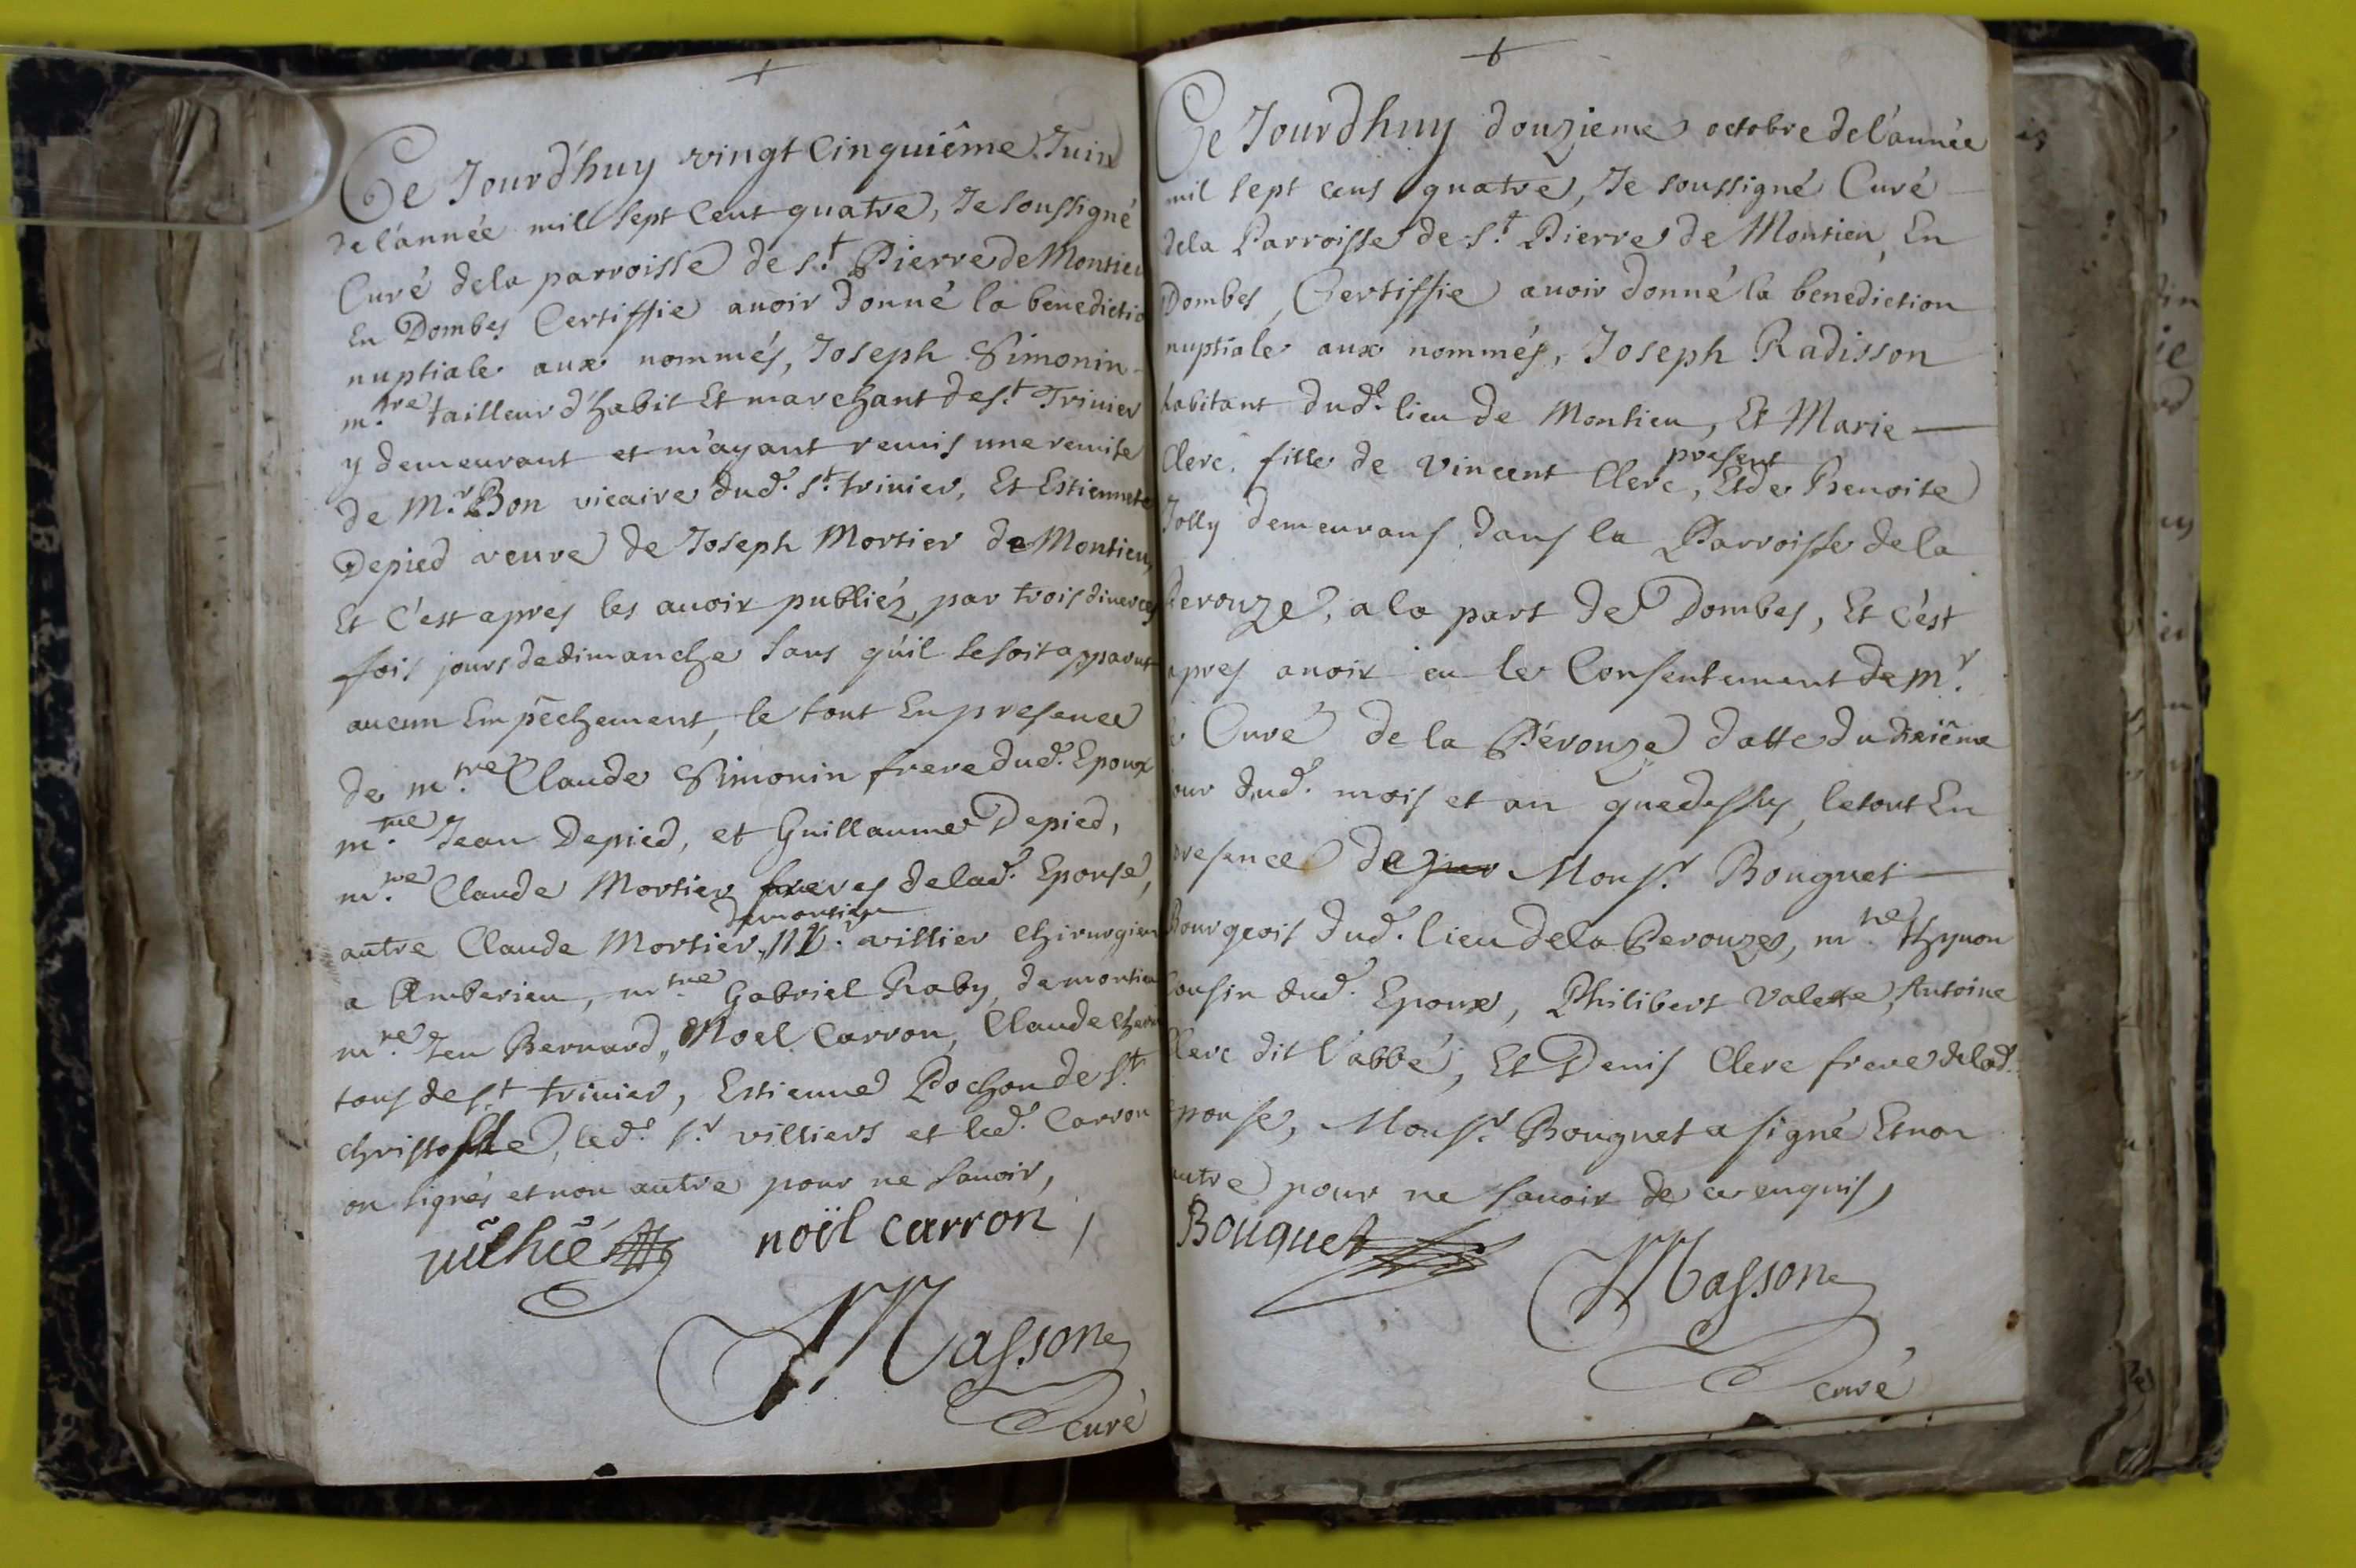 Ce Jourd'huy vingt Cinquiême Juin
de l'année mill sept Cent quatre, Je soussigné
Curé dela parroisse de st Pierre de Montieu
En Dombes Certiffie auoir donné la benedictio
nuptiale aux nommés, Joseph Simonin
m.tre tailleur d'habit Et marchant de st Triuier
y demeurant et m'ayant remis une remise
de Mr Bon vicaire dud. st triuier, Et Estiennete
Depied veuve de Joseph Mortier de Montieu,
Et C'est apres les auoir publiéz, par trois diverces
fois jours de dimanche sans qu'il se soit apparut
aucun Empêchement, le tout En presence
de m.tre Claude Simonin frere dud. Epoux
m.tre Jean Depied, et Guillaume Depied,
m.tre Claude Mortier freres delad. Epouse,
demontieu
autre Claude Mortier, villier chirurgien
a Amberieu, m.tre Gabriel Raby, demontieu
m.re Jen Bernard, Noel Carron, Claude
tous de st triuier, Estienne Pochon de st
christoffle, led. sr villiers et led. Carron
on signés et non autre pour ne sauoir,
noël carron
Masson
curé
Ce Jourdhuy douzieme octobre de l'année
mil sept cens quatre, Je soussigné Curé
dela Parroisse de st Pierre de Montieu, En
Dombes, Certiffie auoir donné la benediction
nuptiale aux nommés, Joseph Radisson
habitant dud. lieu de Montieu, Et Marie
present
Clerc, fille de Vincent Clerc, Et de Benoite
Jolly demeurans dans la Parroisse de la
Perouze, a la part de Dombes, Et c'est
apres auoir eu le Consentement de mr
le Curé de la Pérouze datte du dixiême
jour dud. mois et an que dessus, le tout En
presence de Monsr Bouquet
Bourgeois dud. lieu dela Perouze, m.re thynon
Cousin dud. Epoux, Philibert Valette, Antoine
Clerc dit l'abbé, Et Denis Clerc frere delad.
epouse, Monsr Bouquet a signé Et non
autre pour ne sauoir de ce enquis,
Bouquet
Masson
curé